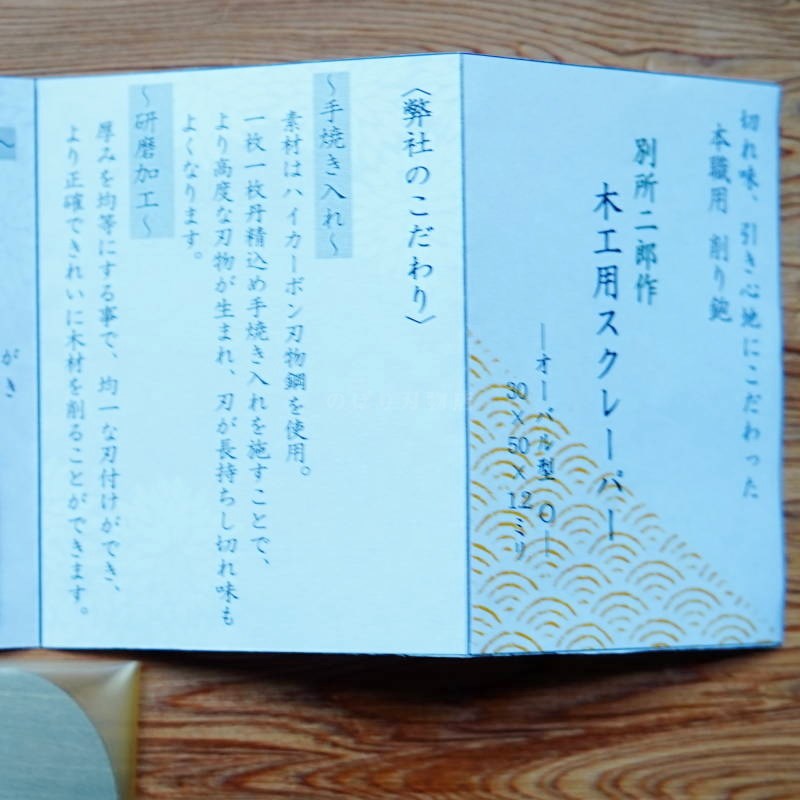 切れ味、引き心地にこだわった
本職用 削り鉋
別所二郎作
木工用スクレーパー
―オーバル型 O―
30×50×12ミリ
〈弊社のこだわり〉
～手焼き入れ～
素材はハイカーボン刃物鋼を使用。
一枚一枚丹精込め手焼き入れを施すことで、
より高度な刃物が生まれ、刃が長持ちし切れ味も
よくなります。
～研磨加工～
厚みを均等にする事で、均一な刃付けができ、
より正確できれいに木材を削ることができます。
がき